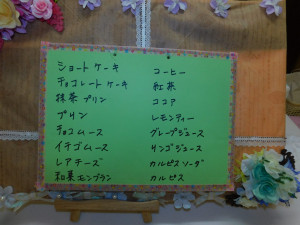 ショートケーキ
チョコレートケーキ
抹茶プリン
プリン
チョコムース
イチゴムース
レアチーズ
和栗モンブラン
コーヒー
紅茶
ココア
レモンティー
グレープジュース
リンゴジュース
カルピスソーダ
カルピス